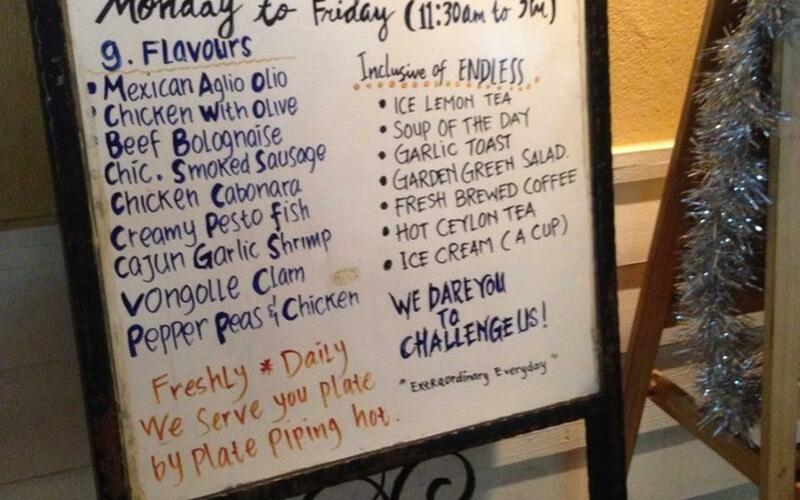 Monday to Friday (11:30am to 3pm)
9. Flavours
• Mexican Aglio Olio
• Chicken With Olive
Beef Bolognaise
Chic. Smoked Sausage
Chicken Cabonara
Creamy Pesto Fish
Cajun Garlic Shrimp
Vongolle Clam
Pepper Peas & Chicken
Freshly * Daily
We Serve you plate
by Plate Piping hot.
Inclusive of ENDLESS
• ICE LEMON TEA
• SOUP OF THE DAY
• GARLIC TOAST
• GARDEN GREEN SALAD.
• FRESH BREWED COFFEE
• HOT CEYLON TEA
• ICE CREAM (A CUP)
WE DARE YOU
TO
CHALLENGE US!
"Extraordinary Everyday"